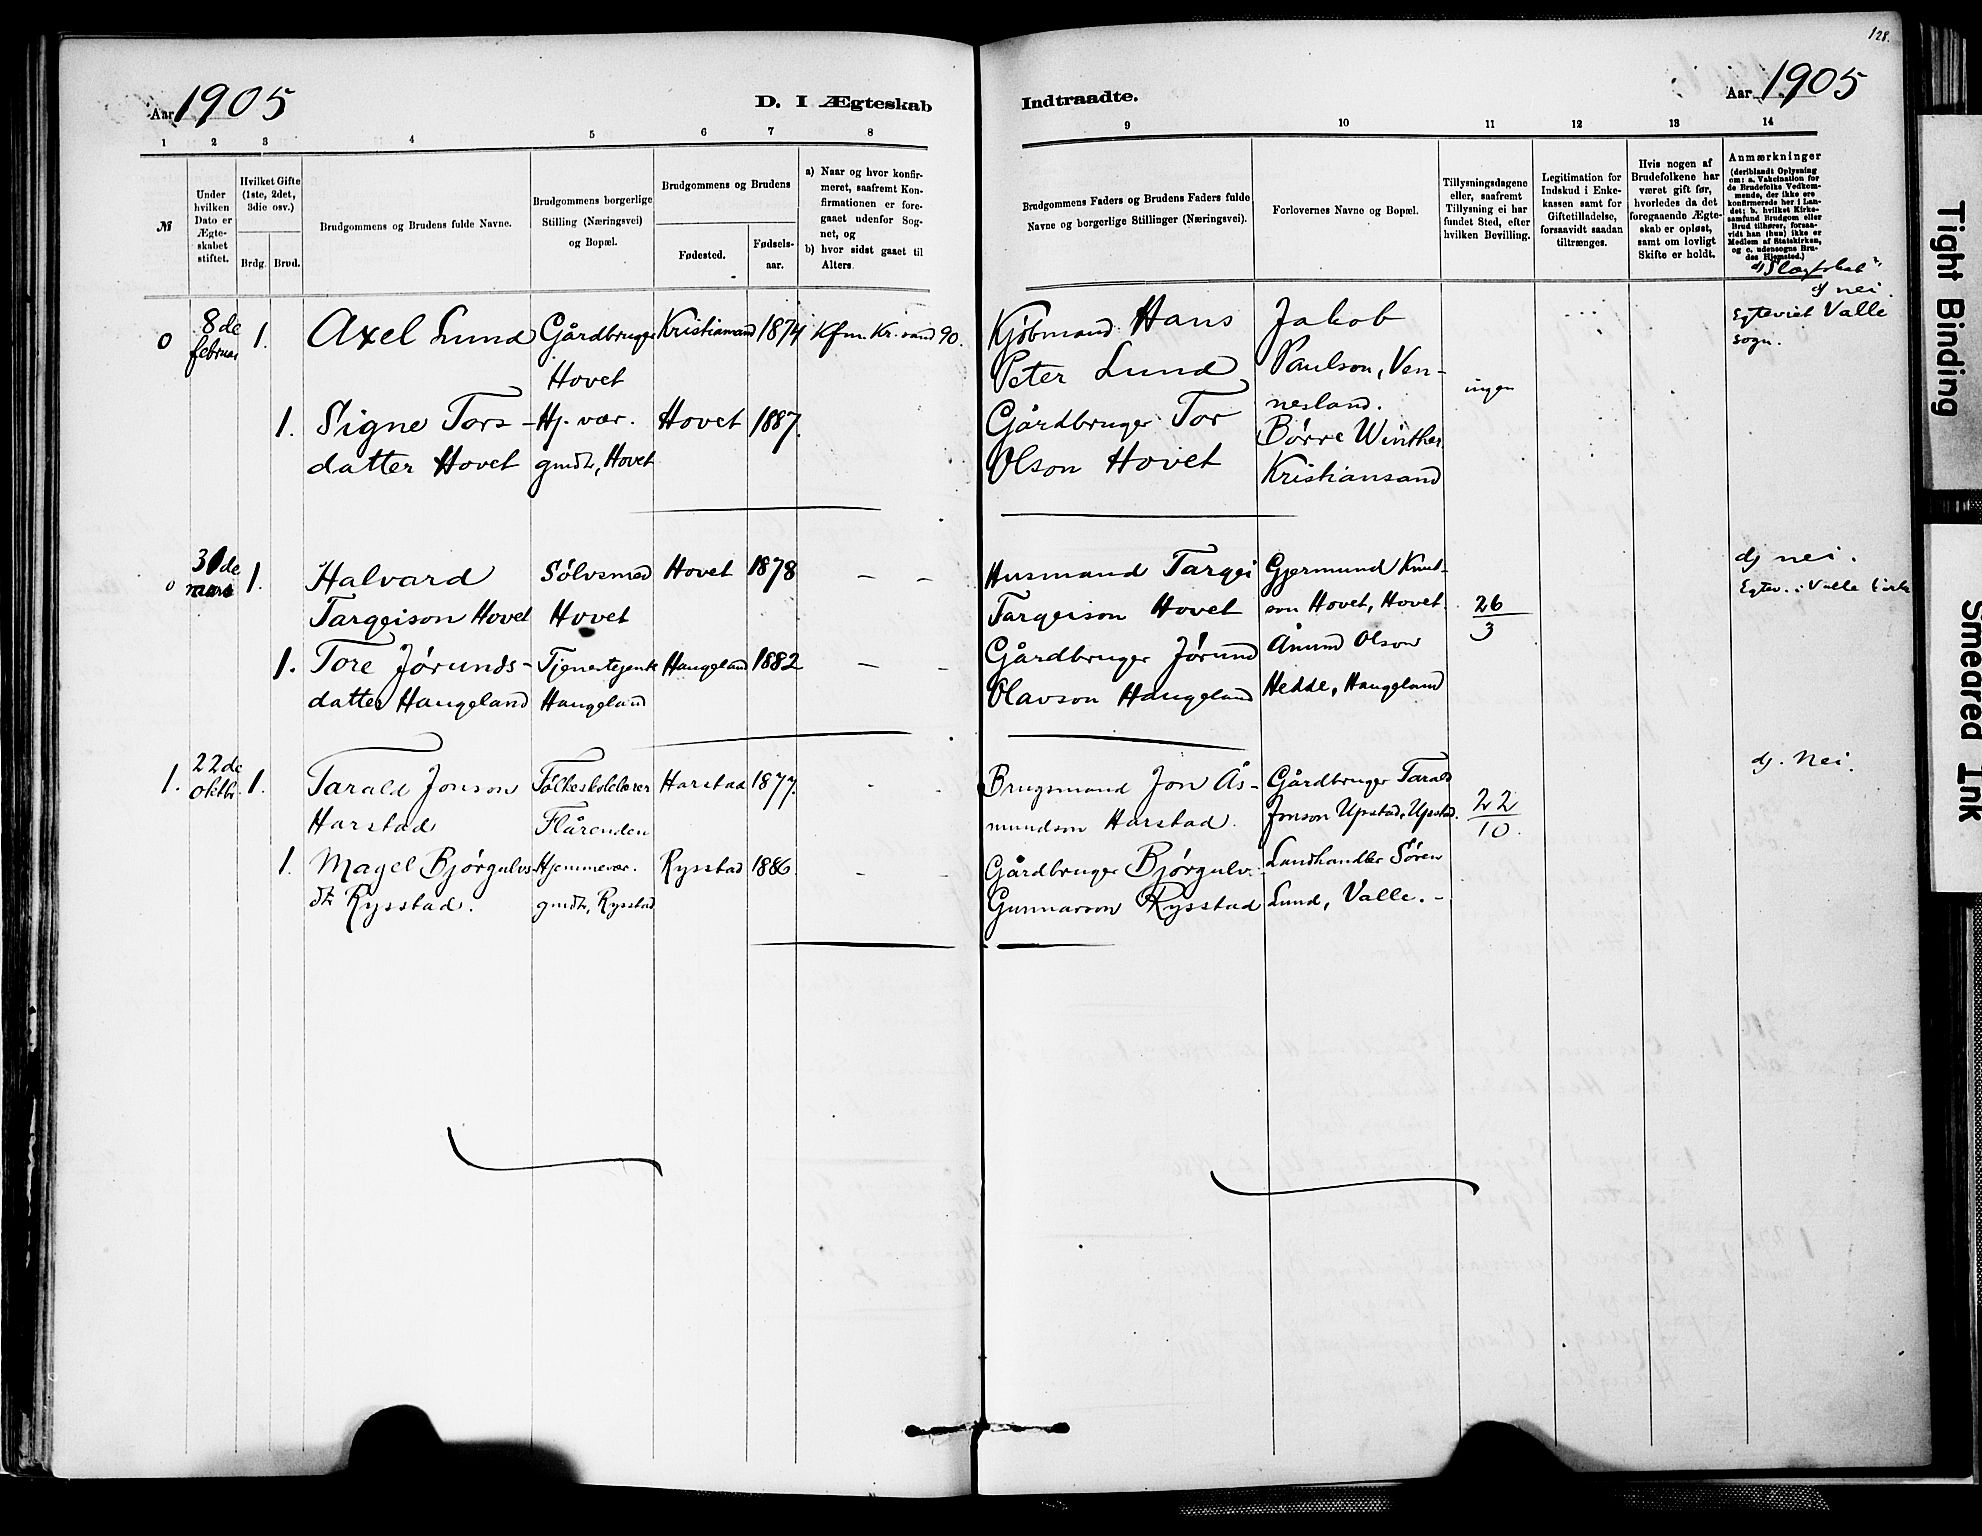 128.
Aar 1905
D. I Ægteskab
Indtraadte.
Aar 1905
1 2 3 4 5 6 7 8
9 10 11 12 13 14
№
Under hvilken Dato er Ægteskabet stiftet.
Hvilket Gifte (1ste, 2det, 3die osv.)
Brdg. Brud.
Brudgommens og Brudens fulde Navne.
Brudgommens borgerlige Stilling (Næringsvei) og Bopæl.
Brudgommens og Brudens
Fødested.
Fødselsaar.
a) Naar og hvor konfirmeret, saafremt Konfirmationen er foregaaet udenfor Sognet, og
b) hvor sidst gaaet til Alters.
Brudgommens Faders og Brudens Faders fulde Navne og borgerlige Stillinger (Næringsvei).
Forlovernes Navne og Bopæl.
Tillysningsdagene eller, saafremt Tillysning ei har fundet Sted, efter hvilken Bevilling.
Legitimation for Indskud i Enkekassen samt for Giftetilladelse, forsaavidt saadan tiltrænges.
Hvis nogen af Brudefolkene har været gift før, hvorledes da det foregaaende Ægteskab er opløst, samt om lovligt Skifte er holdt.
Anmærkninger
(deriblandt Oplysning om: a. Vakcination for de Brudefolks Vedkommende, der ikke ere konfirmerede her i Landet; b. hvilket Kirkesamfund Brudgom eller Brud tilhører, forsaavidt han (hun) ikke er Medlem af Statskirken, og c. udensogns Brudes Hjemsted.)
d) Slægtskab
0 8de 1. Axel Lund Gårdbruger Kristiansand 1874 Kfm. Kr.sand 90.
februar Hovet
1. Signe Tors- Hj. vær. Hovet 1887.
datter Hovet gmdt., Hovet
Kjøbmand Hans Jakob
Peter Lund Paulson, Ven-
Gårdbruger Tor nesland.
Olson Hovet Børre Winther
Kristiansand
ingen
d) nei.
Egteviet Valle
sogn.
0 31de 1. Halvard Sølvsmed Hovet 1878 – –
mars Targeison Hovet Hovet
1. Tore Jørunds- Tjenestejente Haugeland 1882 – –
datter Haugeland Haugeland
Husmand Targei Gjermund Knut-
Targeison Hovet son Hovet, Hovet.
Gårdbruger Jørund Ånund Olson
Olavson Haugeland Hedde, Haugeland
26/3
d) nei.
Egtev. i Valle kirke
1. 22de 1. Tarald Jonson Folkeskolelærer Harstad 1877. - -
oktbr. Harstad Flårenden
1. Magel Bjørgulvs- Hjemmevær. Rysstad 1886. – –
dt. Rysstad. gmdt., Rysstad
Brugsmand Jon Ås- Gårdbruger Tarald
mundson Harstad. Jonson Upstad, Upstad.
Gårdbruger Bjørgulv Landhandler Søren
Gunnarson Rysstad Lund, Valle. -
22/10.
d). Nei.
Tight Binding
Smeared Ink